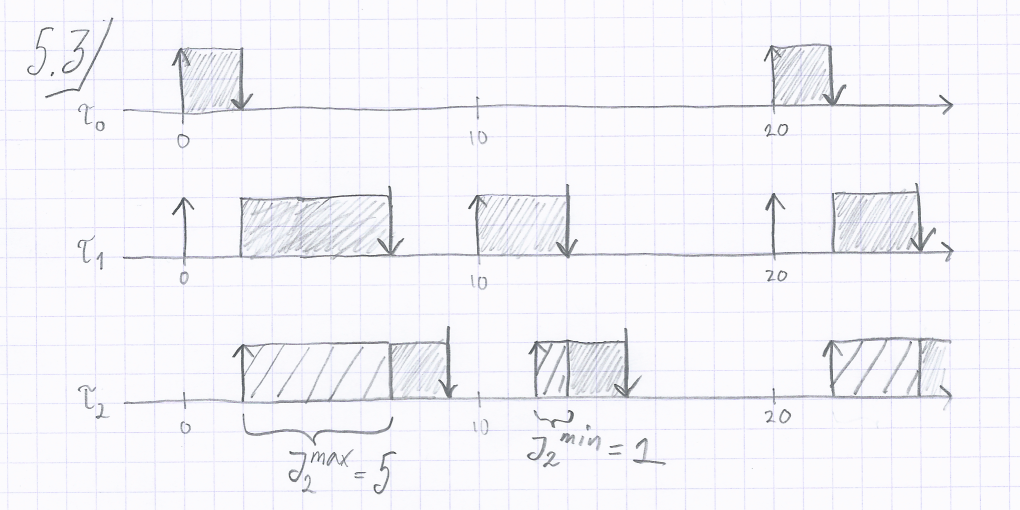 5.3/
τ₀
0 10 20
τ₁
0 10 20
τ₂
0 10 20
J₂ᵐᵃˣ = 5 J₂ᵐⁱⁿ = 1